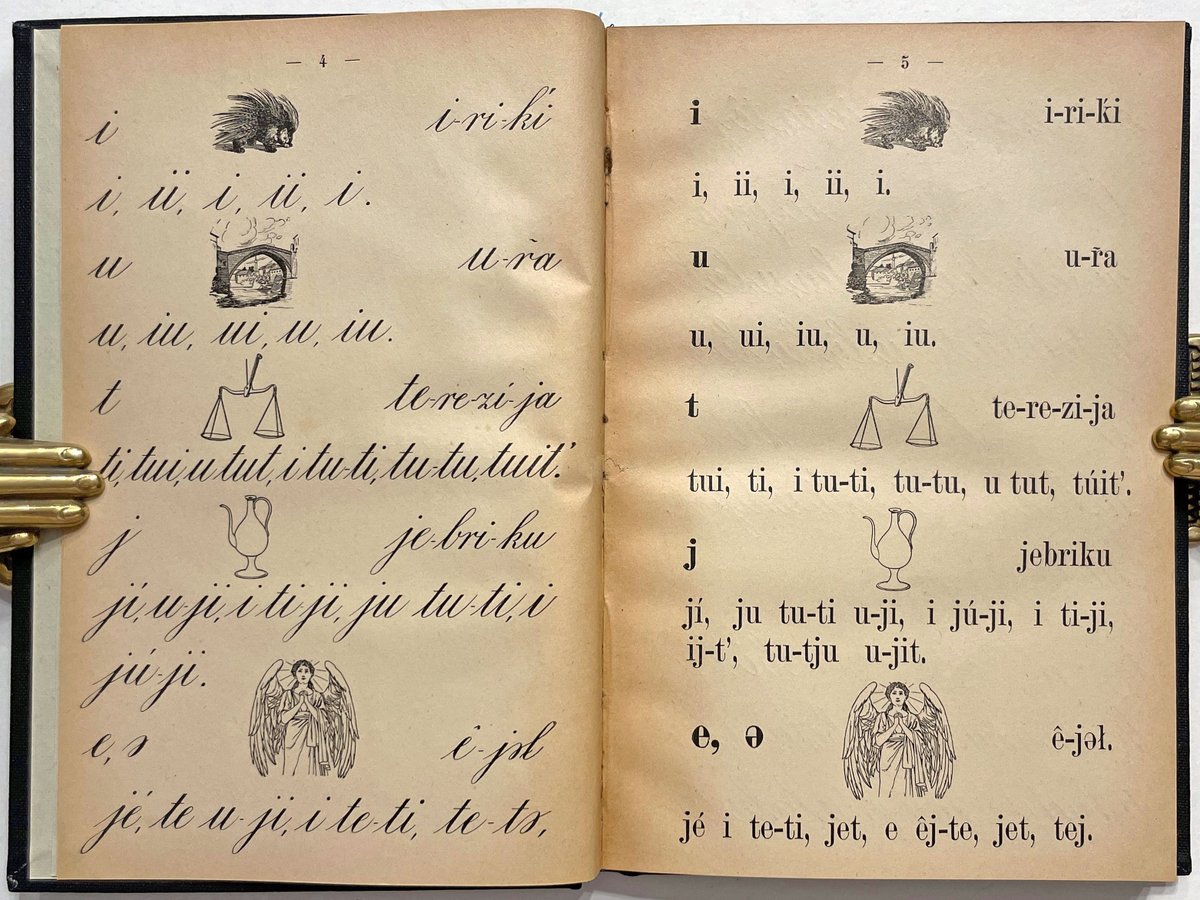 — 4 —
i i-ri-ḱi
i, ii, i, ii, i.
u u-r̃a
u, iu, ui, u, iu.
t te-re-zí-ja
ti, tui, u tut, i tu-ti, tu-tu, tuit'.
j je-bri-ku
jí, u-ji, i ti ji, ju tu-ti, i
jú-ji.
e, ə ê-jəł
jé, te u-ji, i te-ti, te-tə,
— 5 —
i i-ri-ḱi
i, ii, i, ii, i.
u u-r̃a
u, ui, iu, u, iu.
t te-re-zi-ja
tui, ti, i tu-ti, tu-tu, u tut, túit'.
j jebriku
jí, ju tu-ti u-ji, i jú-ji, i ti-ji,
ij-t', tu-tju u-jit.
e, ə ê-jəł.
jé i te-ti, jet, e êj-te, jet, tej.